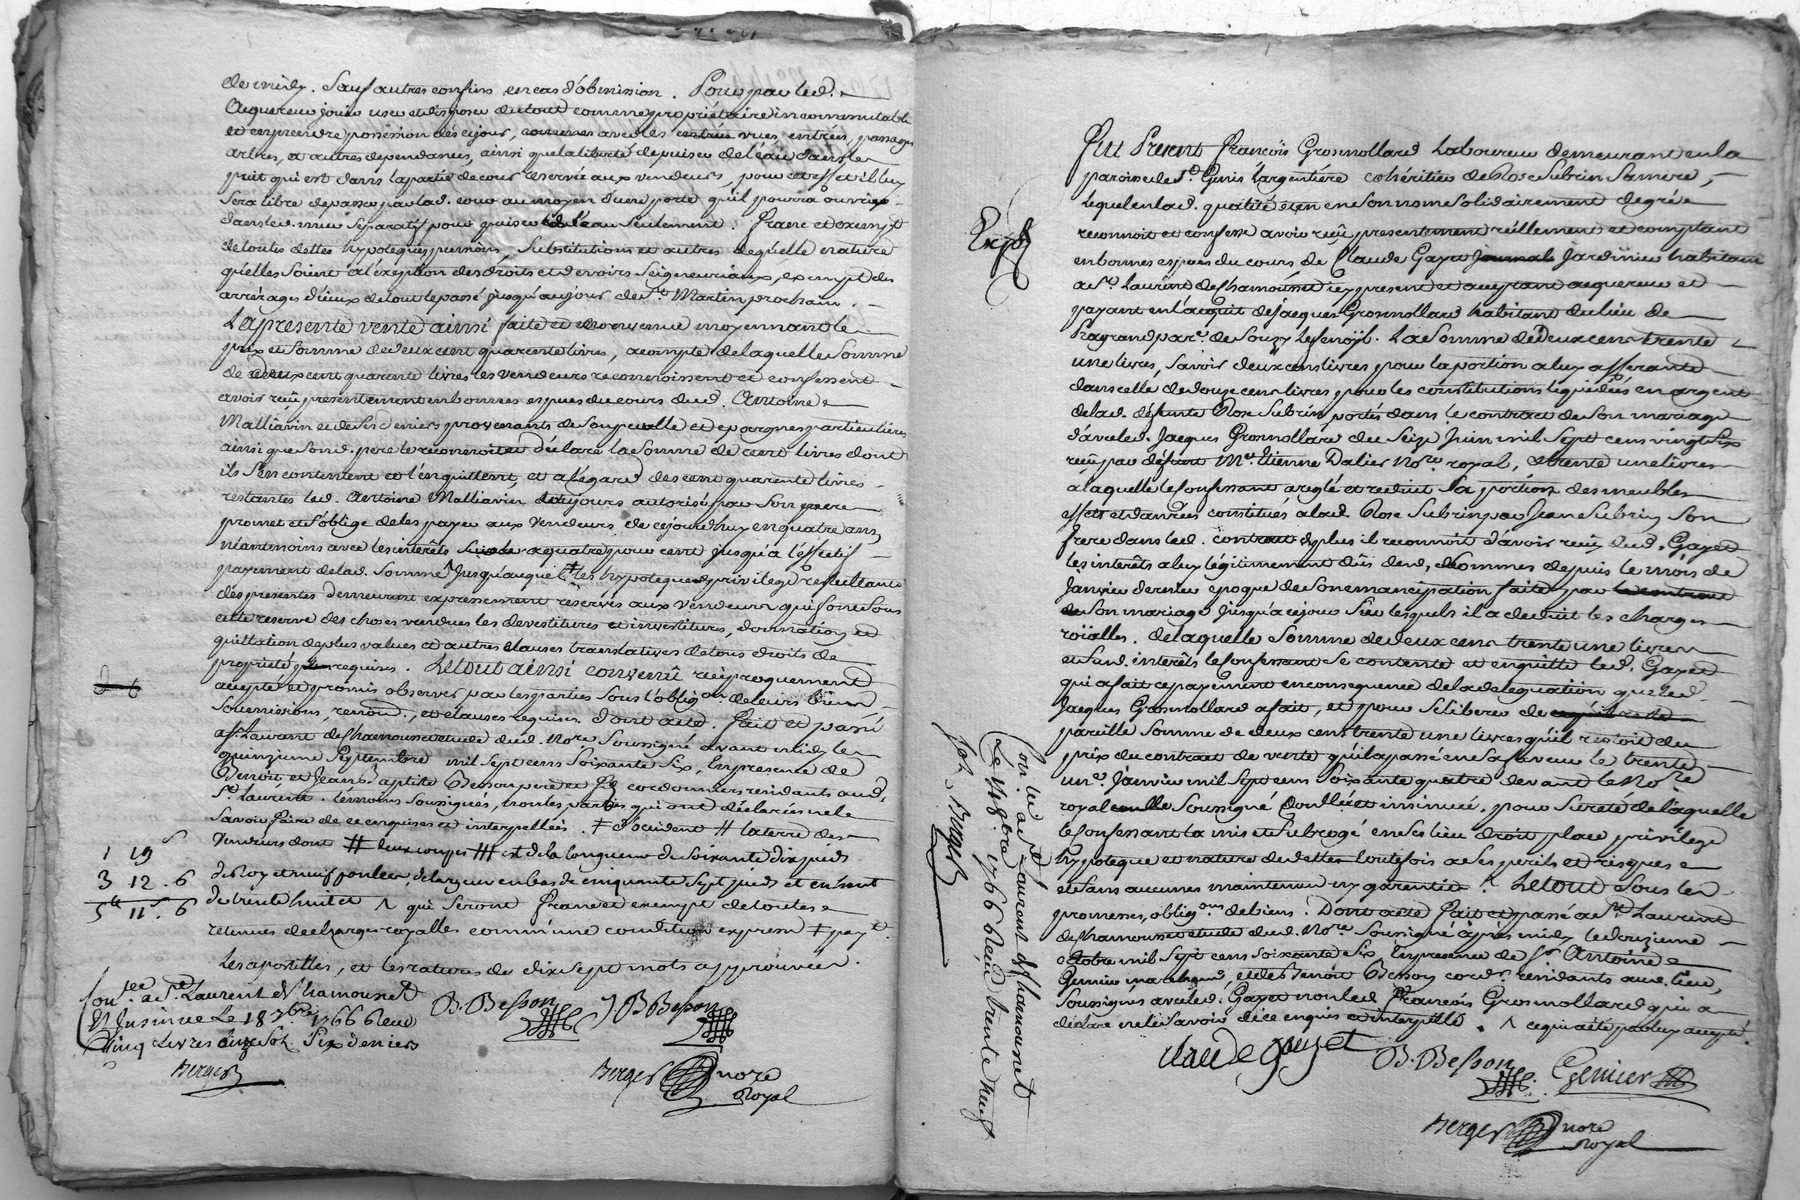 de midy. Sauf autres confins en cas d'obmission. Pour par led.
Acquereur jouir user et disposer du tout comme propriétaire incommutable
et en prendre possession dès cejour, avec les vues, entrées, passages
arbres, et autres dependances, ainsi que la liberté de puiser de l'eau dans le
puit qui est dans la partie de cour reservée aux vendeurs, pour et effet il luy
sera libre de passer par lad. cour au moyen d'une porte qu'il pourra ouvrir
dans led. mur séparatif pour puiser de l'eau seulement. Franc et exempt
de toutes dettes hypoteques pensions, substitutions et autres de quelle nature
qu'elles soient à l'exeption des droits et devoirs seigneuriaux, exempt des
arrérages d'iceux de tout le passé jusqu'au jour de St Martin prochain.
La presente vente ainsi faite et convenue moyennant le
prix et somme de deux cent quarente livres, a compte de laquelle somme
de deux cent quarente livres les vendeurs reconnoissent et confessent
avoir reçu presentement en bonnes especes du cours dud. Antoine
Malliavin et de ses deniers provenants de son pecule et epargnes particulieres
ainsi que sond. pere le reconnoit et déclare la somme de cent livres dont
ils s'en contentent et l'en quittent, et a l'egard des cent quarente livres
restantes led. Antoine Malliavin toujours autorisé par son pere
promet et s'oblige de les payer aux vendeurs de cejourd'huy en quatre ans,
néantmoins avec les intérêts a quatre pour cent jusqu'a l'effectif
payement de lad. somme ^ jusqu'auquel ‡ les hypoteque et privilege resultants
des presentes demeurent expressement reservés aux vendeurs qui font sous
cette reserve des choses vendues les devestitures et investitures, donnation et
quittation de plus values et autres clauses translatives de tous droits de
propriété requises. Le tout ainsi convenû reciproquement
accepté et promis observer par les parties sous l'obligon. de leurs biens
soumissions, renond., et clauses requises. Dont acte. Fait et passé
a St. Laurent de Chamousset etude dud. Nore. Soussigné avant midy le
quinzieme Septembre mil sept cens soixante six, En presence de
Benoit, et Jean Baptiste Besson pere et fils cordonniers residants aud.
St. Laurent. témoins soussignés, non les parties qui ont déclarés ne le
savoir faire de ce enquises et interpellées. ‡ d'occident # la terre des
Vendeurs dont ## deux coupes ### est de la longueur de soixante dix pieds
de Roy et neuf pouleu, de largeur en bas de cinquante sept pieds et en
de trente huit et ^ qui seront franc et exempt de toutes
retenues de charges royalles comme une condition expresse ‡ payt.
Les apostilles, et les ratures de dix sept mots approuvées.
1 19 s
3 12 . 6
5 lt 11 s. 6
Conlée a St. Laurent de Chamousset
Et Insinué Le 18 7bre 1766 Reçu
Cinq Livres onze sols Six deniers
Berger
B. Besson J B Besson
Berger nore
Royal
Expd
Fut Present François Grosmollard Laboureur demeurant en la
paroisse de St. Genis l'argentiere cohéritier de Rose Subrin sa mere,
lequel en lad. qualité et en son nom solidairement de gré
reconnoit et confesse avoir reçu presentement réellement et comptant
en bonnes especes du cours de Claude Gayet Jardinier habitant
a St. Laurent de Chamousset icy present et acceptant acquereur et
payant en l'acquit de Jacques Grosmollard habitant du lieu de
Pragrand parse. de Souzy . La somme de Deux cens trente
une livres, savoir deux cens livres pour la portion a luy afferante
dans celle de douze cens livres pour les constitutions liquidées en argent
de lad. défunte Rose Subrin portés dans le contract de son mariage
d'avec led. Jacques Grosmollard du seize Juin mil sept cens vingt six
reçu par défunt Me. Etienne Dalier Nore. royal, et trente une livres
a laquelle le confessant a reglé et reduit sa portion des meubles
effets et danrées constitués a lad. Rose Subrin par Jean Subrin son
frere dans led. contract deplus il reconnoit d'avoir reçu dud. Gayet
les intérêts a luy légitimement dûs desd. sommes depuis le mois de
Janvier dernier epoque de son emancipation faite par
son mariage jusqu'a cejour sur lesquels il a deduit les charges
roïalles. de laquelle somme de deux cens trente une livres
et susd. intérêts le confessant se contente et en quitte led. Gayet
qui a fait ce payement en consequence de la delegation que led.
Jacques Grosmollard a fait, et pour se liberer de
pareille somme de deux cens trente une livres qu'il restoit du
prix du contrat de vente qu'il a passé en sa faveur le trente
une. Janvier mil sept cens soixante quatre devant le Nore.
royal soussigné controllé et insinué. pour sureté de laquelle
le confessant l'a mis et subrogé en ses lieu droit place privilege
hypoteque et nature de dettes toutefois a ses perils et risques
et sans aucunes maintenue ny garentie ^. Le tout sous les
promesses, obligons. de biens. Dont acte Fait et passé a St. Laurent
de Chamousset etude dud. Nore. Soussigné apres midy le douzieme
octobre mil sept cens soixante six, En presence de Sr. Antoine
Genier marchand, et de Benoit Besson cordr. residants aud. lieu,
soussignés avec led. Gayet non led. François Grosmollard qui a
déclaré ne le savoir de ce enquis et interpellé. ^ ce qui a été par luy accepté
Con lée a St Laurent de Chamousset
Le 18 8bre 1766 Reçu trente neuf
sols Berger
Claude Gayet B. Besson Genier
Berger nore
Royal